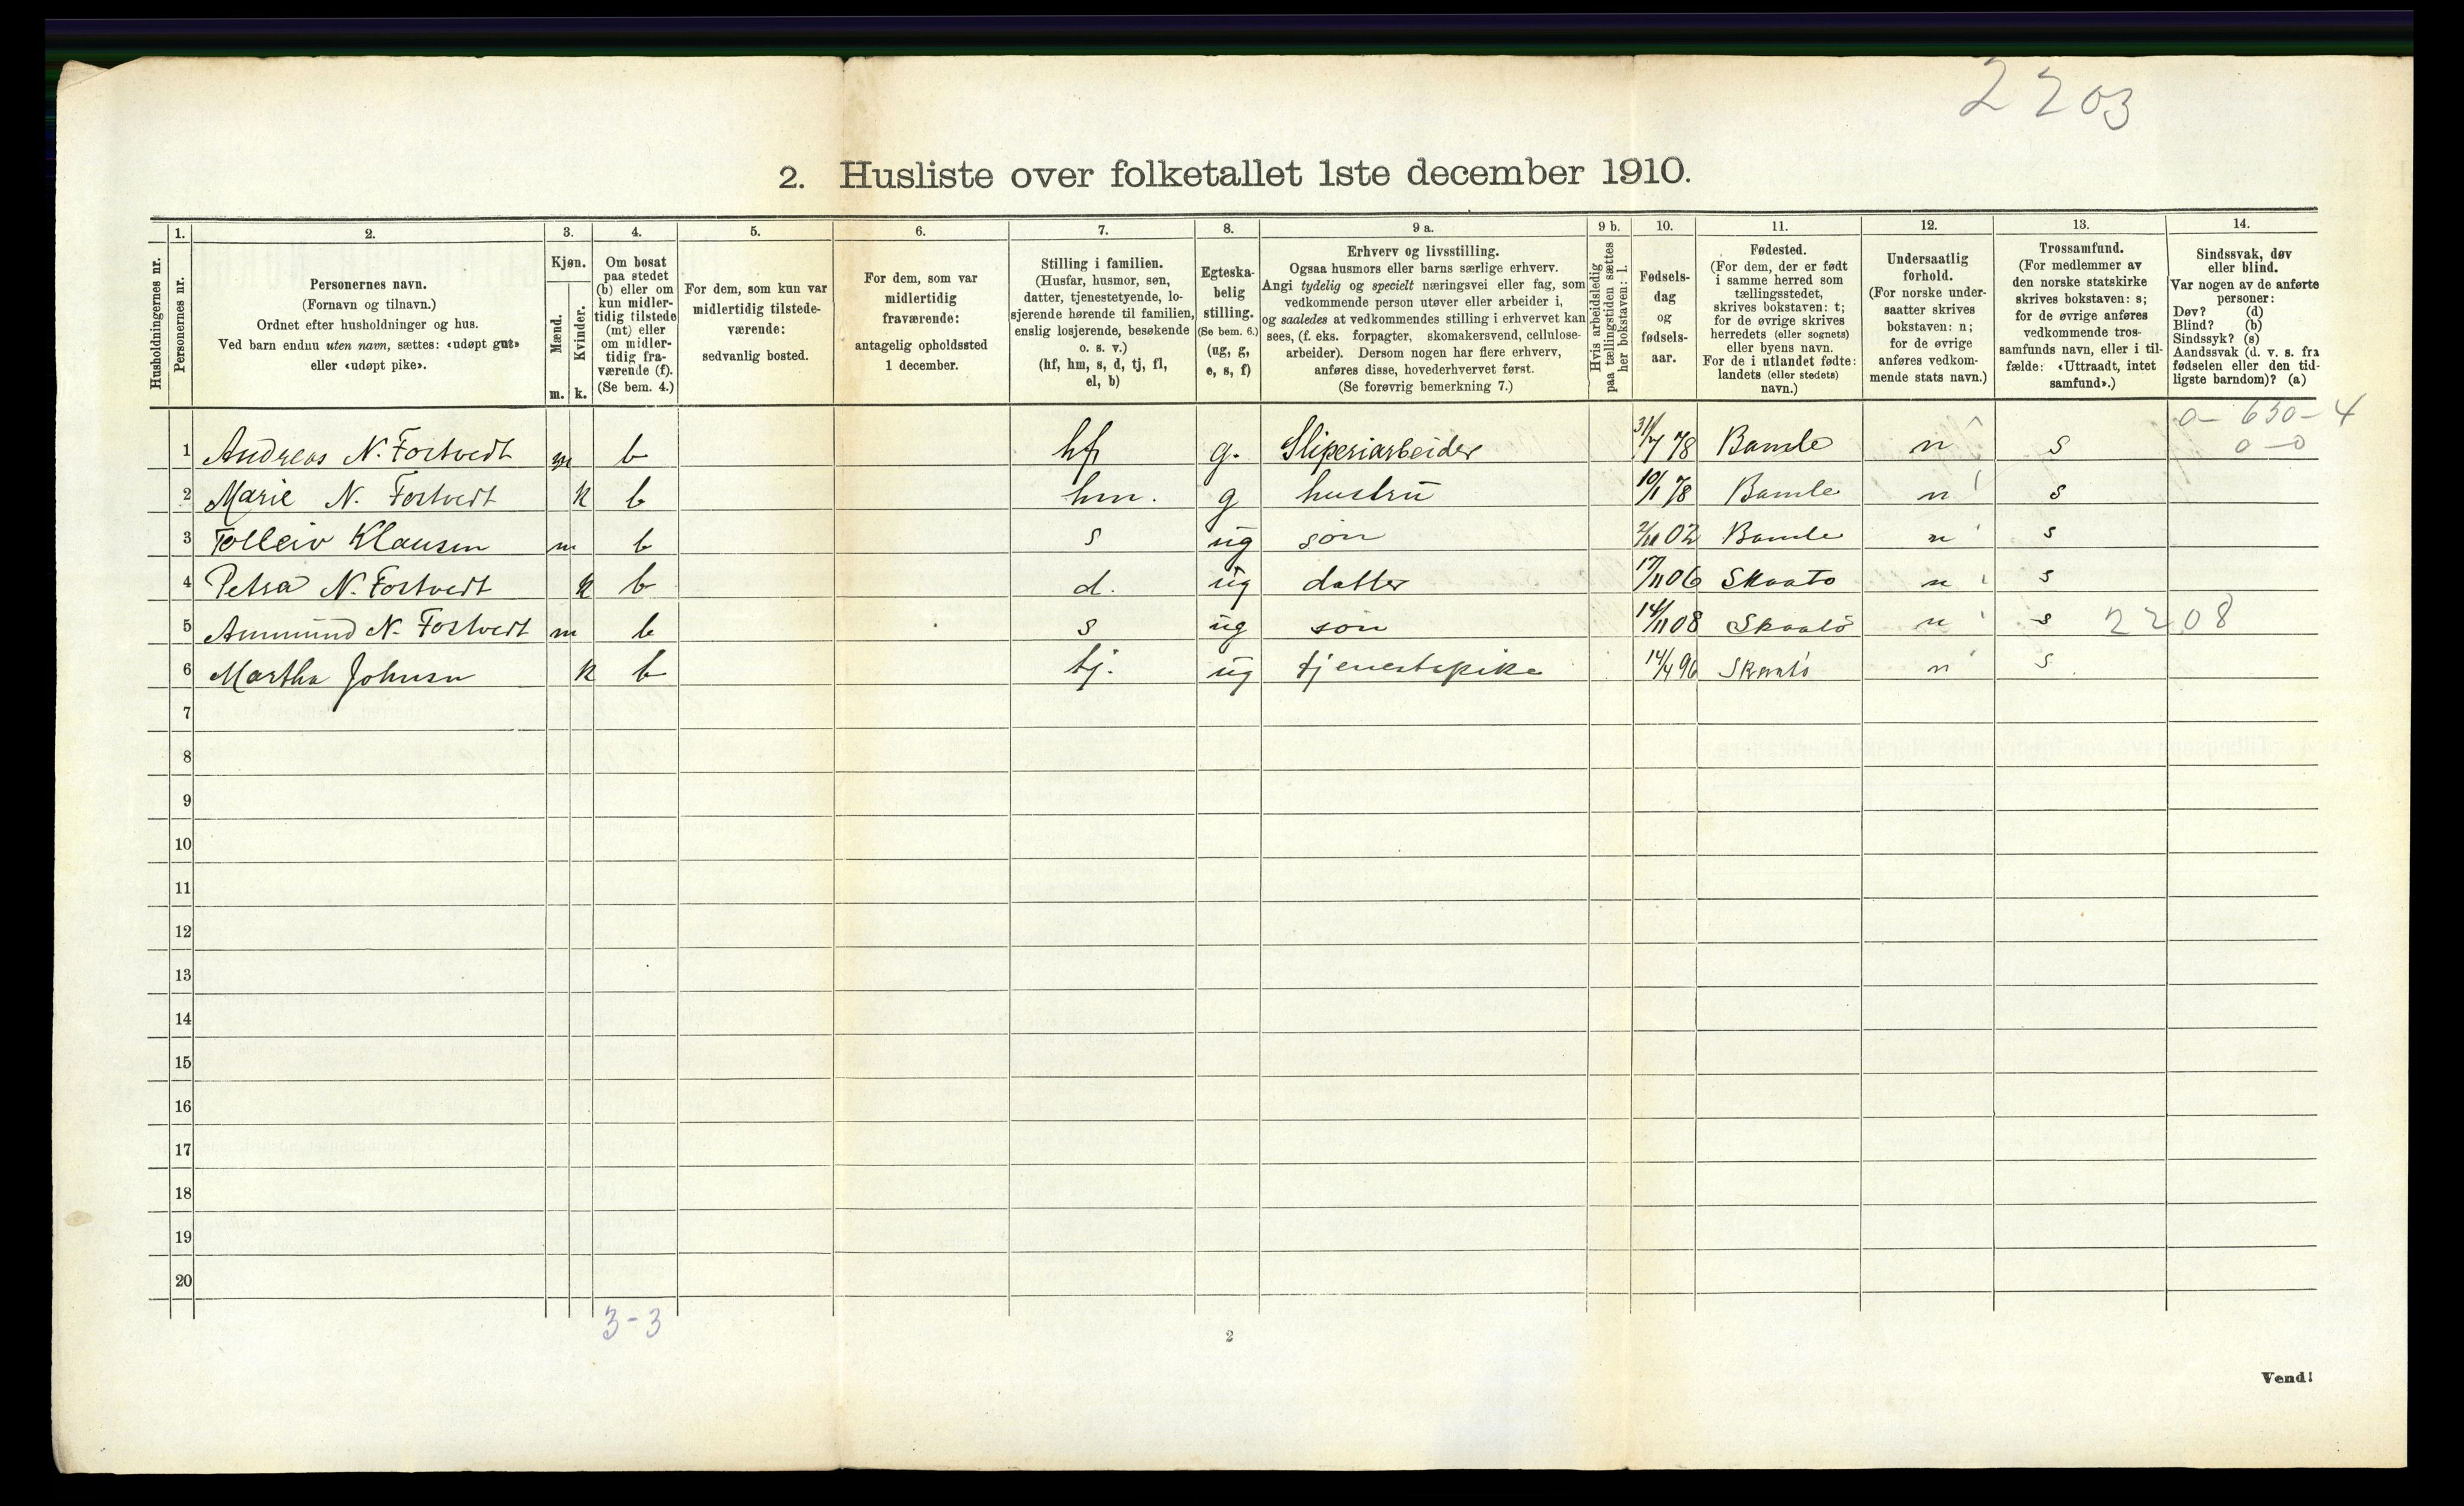 2203
2. Husliste over folketallet 1ste december 1910.
Husholdningernes nr.
1.
Personernes nr.
2.
Personernes navn.
(Fornavn og tilnavn.)
Ordnet efter husholdninger og hus.
Ved barn endnu uten navn, sættes: «udøpt gut»
eller «udøpt pike».
3.
Kjøn.
Mænd.
Kvinder.
m. k.
4.
Om bosat
paa stedet
(b) eller om
kun midler-
tidig tilstede
(mt) eller
om midler-
tidig fra-
værende (f).
(Se bem. 4.)
5.
For dem, som kun var
midlertidig tilstede-
værende:
sedvanlig bosted.
6.
For dem, som var
midlertidig
fraværende:
antagelig opholdssted
1 december.
7.
Stilling i familien.
(Husfar, husmor, søn,
datter, tjenestetyende, lo-
sjerende hørende til familien,
enslig losjerende, besøkende
o. s. v.)
(hf, hm, s, d, tj, fl,
el, b)
8.
Egteska-
belig
stilling.
(Se bem. 6.)
(ug, g,
e, s, f)
9 a.
Erhverv og livsstilling.
Ogsaa husmors eller barns særlige erhverv.
Angi tydelig og specielt næringsvei eller fag, som
vedkommende person utøver eller arbeider i,
og saaledes at vedkommendes stilling i erhvervet kan
sees, (f. eks. forpagter, skomakersvend, cellulose-
arbeider). Dersom nogen har flere erhverv,
anføres disse, hovederhvervet først.
(Se forøvrig bemerkning 7.)
9 b.
Hvis arbeidsledig
paa tællingstiden sættes
her bokstaven: l.
10.
Fødsels-
dag
og
fødsels-
aar.
11.
Fødested.
(For dem, der er født
i samme herred som
tællingsstedet,
skrives bokstaven: t;
for de øvrige skrives
herredets (eller sognets)
eller byens navn.
For de i utlandet fødte:
landets (eller stedets)
navn.)
12.
Undersaatlig
forhold.
(For norske under-
saatter skrives
bokstaven: n;
for de øvrige
anføres vedkom-
mende stats navn.)
13.
Trossamfund.
(For medlemmer av
den norske statskirke
skrives bokstaven: s;
for de øvrige anføres
vedkommende tros-
samfunds navn, eller i til-
fælde: «Uttraadt, intet
samfund».)
14.
Sindssvak, døv
eller blind.
Var nogen av de anførte
personer:
Døv? (d)
Blind? (b)
Sindssyk? (s)
Aandssvak (d. v. s. fra
fødselen eller den tid-
ligste barndom)? (a)
0-650-4
0-0
1 Andreas N. Fostvedt m b hf g. Sliperiarbeider 31/7 78 Bamle n s
2 Marie N. Fostvedt k b hm. g hustru 10/1 78 Bamle n s
3 Tolleiv Klausen m b s ug søn 02 Bamle n s
4 Petra N. Fostvedt k b d. ug datter 17/11 06 Skaatø n s
5 Ammund N. Fostvedt m b s ug søn 14/11 08 Skaatø n s 2208
6 Martha Johnsen k b tj. ug tjenestepike 14/4 96 Skaatø n s
7
8
9
10
11
12
13
14
15
16
17
18
19
20
3-3
2
Vend!